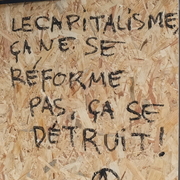 LE CAPITALISME,
ÇA NE SE
RÉFORME
PAS, ÇA SE
DÉTRUIT!